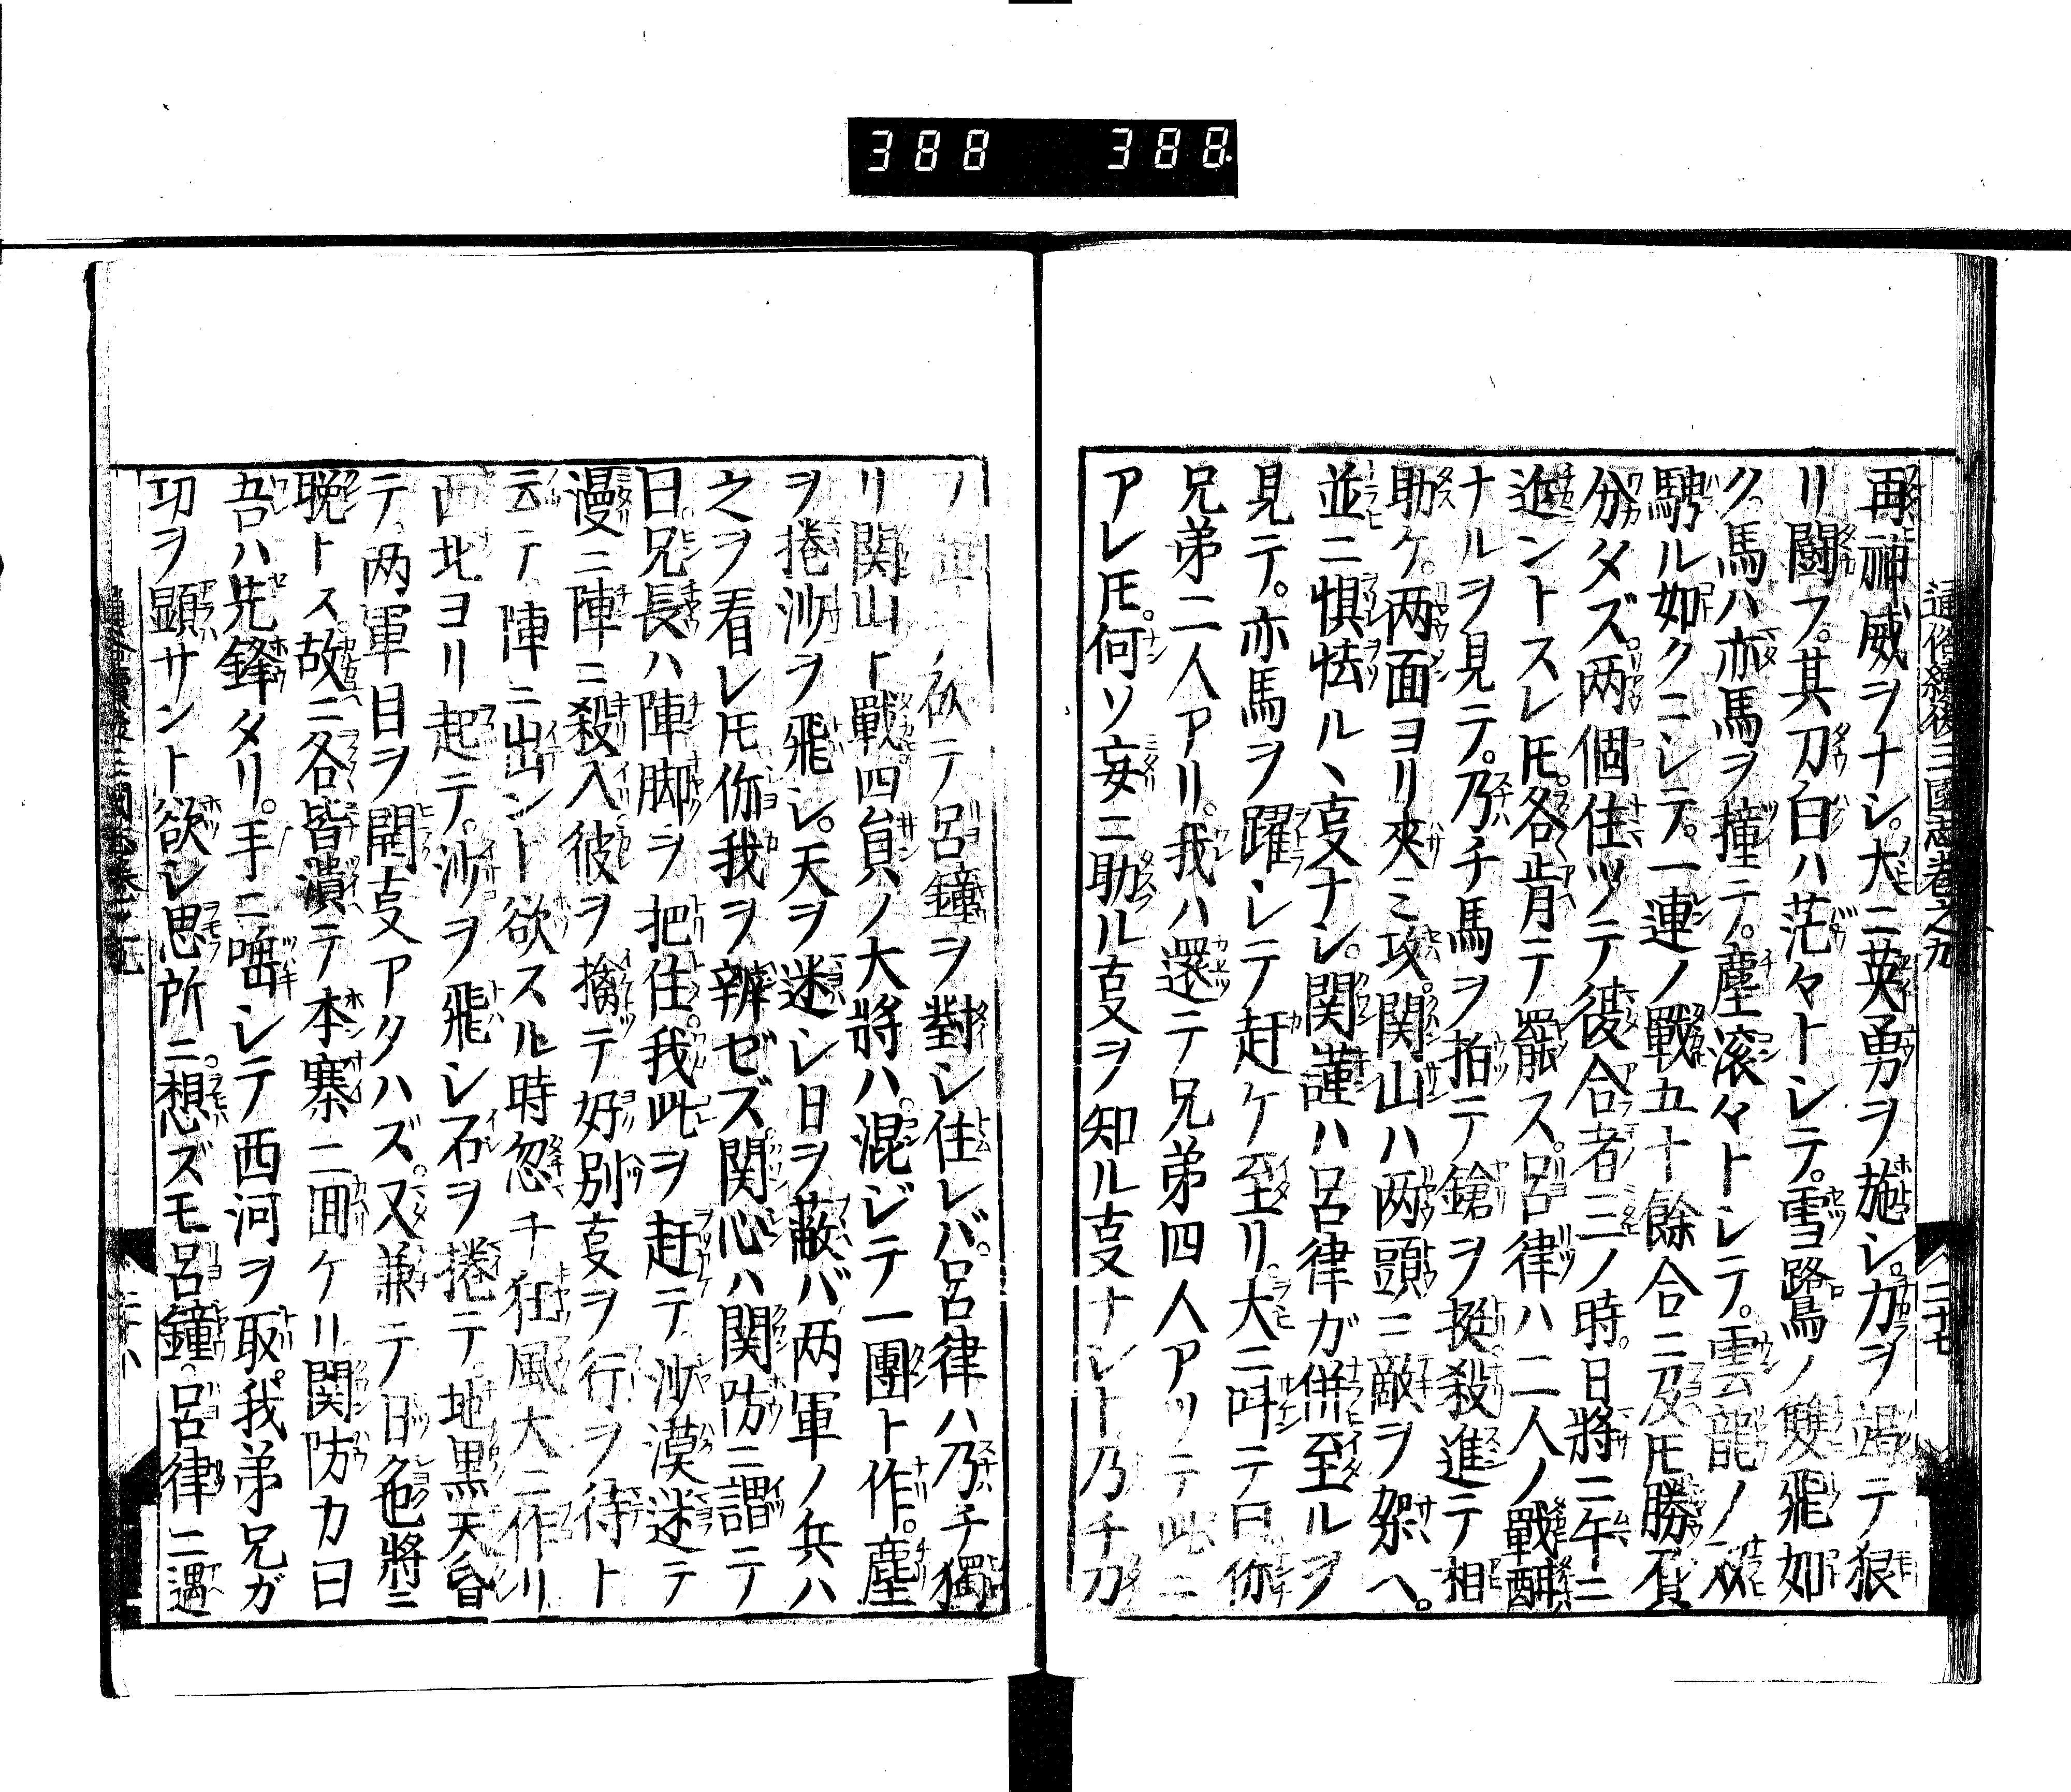 388 388
通俗續後三國志卷之九
二十七
再神威ヲナシ。大ニ英勇ヲ施シ。力ヲ竭テ狠
リ闘フ。其刀白ハ茫々トシテ。雪路鳥ノ雙飛如
ク。馬ハ亦馬ヲ撞ニテ。塵滚々トシテ。雲龍ノ双
騁ル如クニシテ。一連ノ戰五十餘合ニ及𪜈勝負
分タズ。两個住ツテ後合者三ノ時。日將ニ午ニ
近ントスレ𪜈。各肯テ罷ス。呂律ハ二人ノ戰酣
ナルヲ見テ。乃チ馬ヲ拍テ鎗ヲ挺殺進テ相
助ケ。两面ヨリ夾ミ攻。関山ハ两頭ニ敵ヲ架ヘ。
並ニ惧怯ル、㕝ナシ。関謹ハ呂律ガ併至ルヲ
見テ。亦馬ヲ躍シテ赶ケ至リ。大ニ叫テ曰你
兄弟二人アリ。我ハ還テ兄弟四人アッテ此ニ
アレ𪜈。何ソ妄ニ助ル㕝ヲ知ル㕝ナレト乃チ刀
ヲ テ呂鐘ヲ對シ住レバ。呂律ハ乃チ獨
リ関山ト戰四員ノ大將ハ。混ジテ一團ト作。塵
ヲ捲沙ヲ飛シ。天ヲ迷シ日ヲ蔽バ两軍ノ兵ハ
之ヲ看レ𪜈你我ヲ辨ゼズ関心ハ関防ニ謂テ
曰。兄長ハ陣脚ヲ把住我此ヲ赶テ沙漠迷テ
漫ニ陣ニ殺入彼ヲ擒テ好別㕝ヲ行ヲ待ト
云テ陣ニ出ント欲スル時忽チ狂風大ニ作リ
西北ヨリ起テ。沙ヲ飛シ石ヲ捲テ。地黒天昏
テ两軍目ヲ開㕝アタハズ。又兼テ日色將ニ
晩トス故ニ各皆潰テ本寨ニ囬ケリ関防カ曰
吾ハ先鋒タリ。手ニ唾シテ西河ヲ取。我弟兄ガ
功ヲ顕サント欲レ思所ニ。想ズモ呂鐘。呂律ニ遇